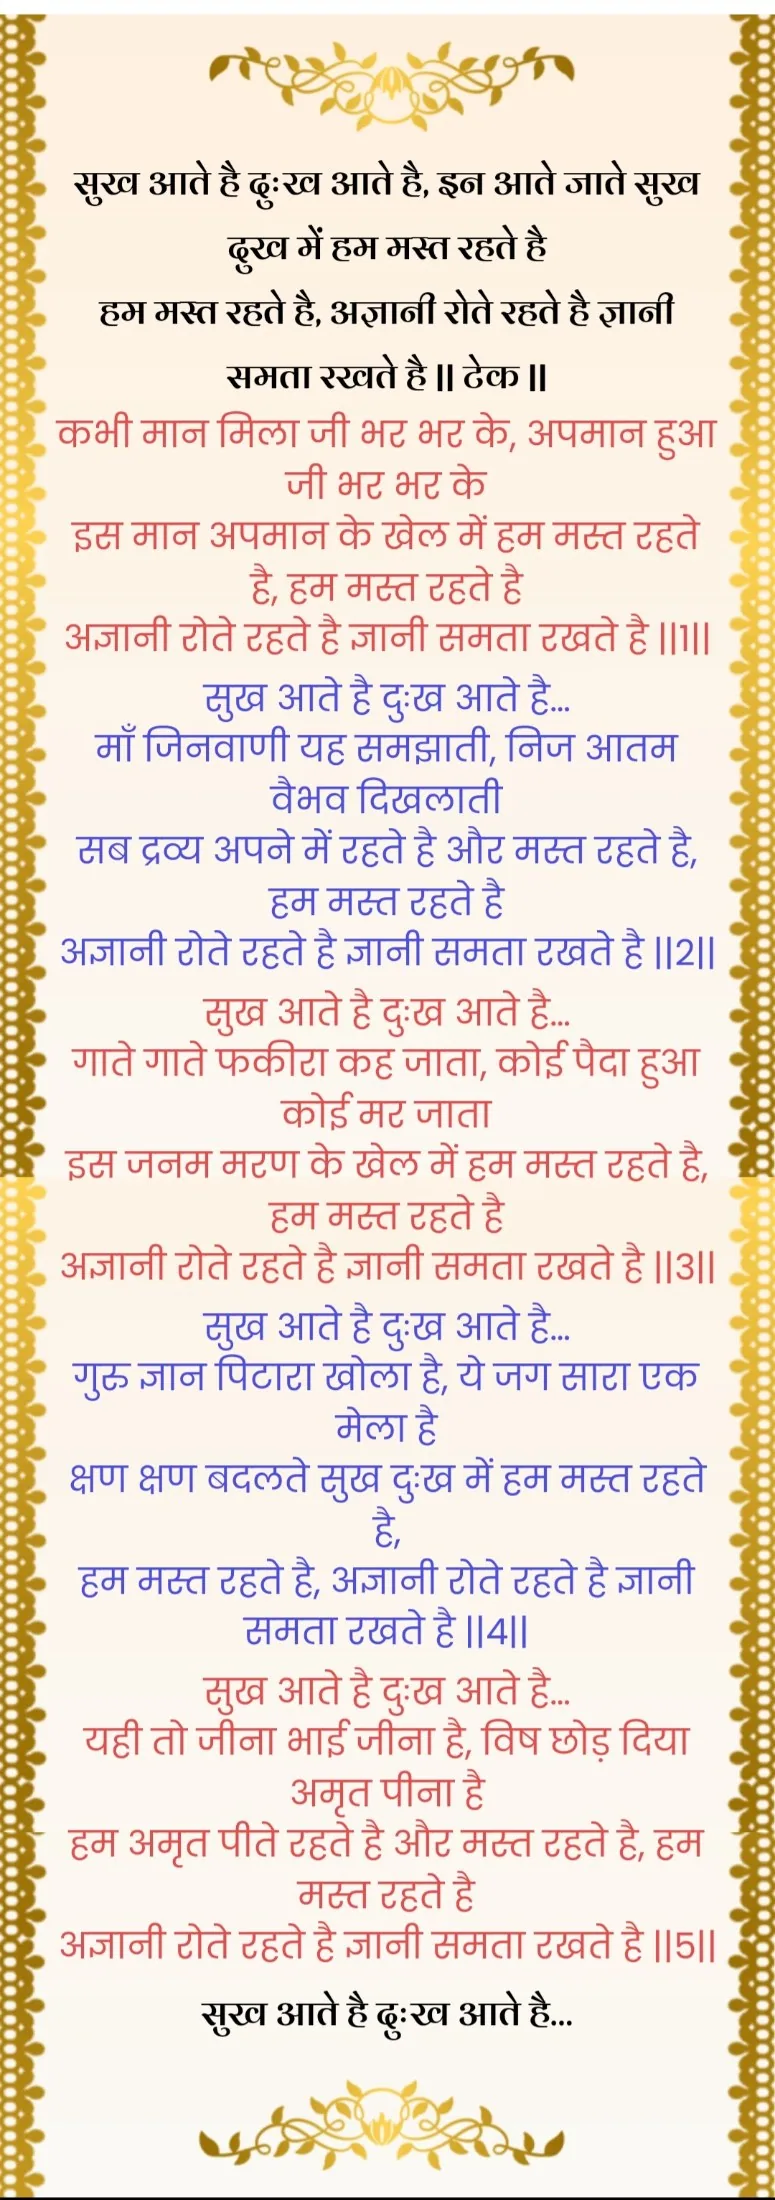 सुख आते है दुःख आते है, इन आते जाते सुख
दुख में हम मस्त रहते है
हम मस्त रहते है, अज्ञानी रोते रहते है ज्ञानी
समता रखते है || टेक ||
कभी मान मिला जी भर भर के, अपमान हुआ
जी भर भर के
इस मान अपमान के खेल में हम मस्त रहते
है, हम मस्त रहते है
अज्ञानी रोते रहते है ज्ञानी समता रखते है ||1||
सुख आते है दुःख आते है...
माँ जिनवाणी यह समझाती, निज आतम
वैभव दिखलाती
सब द्रव्य अपने में रहते है और मस्त रहते है,
हम मस्त रहते है
अज्ञानी रोते रहते है ज्ञानी समता रखते है ||2||
सुख आते है दुःख आते है...
गाते गाते फकीरा कह जाता, कोई पैदा हुआ
कोई मर जाता
इस जनम मरण के खेल में हम मस्त रहते है,
हम मस्त रहते है
अज्ञानी रोते रहते है ज्ञानी समता रखते है ||3||
सुख आते है दुःख आते है...
गुरु ज्ञान पिटारा खोला है, ये जग सारा एक
मेला है
क्षण क्षण बदलते सुख दुःख में हम मस्त रहते
है,
हम मस्त रहते है, अज्ञानी रोते रहते है ज्ञानी
समता रखते है ||4||
सुख आते है दुःख आते है...
यही तो जीना भाई जीना है, विष छोड़ दिया
अमृत पीना है
हम अमृत पीते रहते है और मस्त रहते है, हम
मस्त रहते है
अज्ञानी रोते रहते है ज्ञानी समता रखते है ||5||
सुख आते है दुःख आते है...